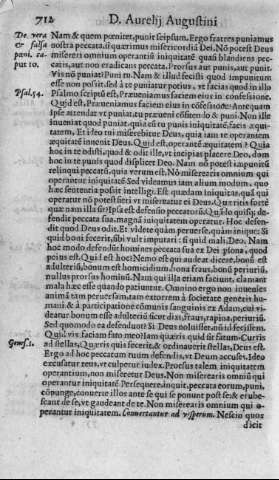 712 D. Aurelij Augustini
De vera & falsa pœni. ca-put 10.
Psal. 54.
Genes. 1.
Nam & quem pœnitet, punit seipsum. Ergo fratres puniamus
nostra peccata, si quærimus misericordiā Dei. Nō potest Deus
misereri omnium operantiū iniquitatē quasi blandiens pec-
catis, aut non eradicans peccata. Prorsus aut punis, aut punit.
Vis nō puniat? Puni tu. Nam & illud fecisti quod impunitum
esse non possit. sed à te puniatur potius, vt facias quod in illo
Psalmo scriptū est, Præueniamus faciem eius in confessione.
Quid est, Præueniamus faciem eius in cōfessione? Ante quam
ipse attendat vt puniat, tu præueni cōfitendo & puni. Non ille
inueniat quod puniat. quia
tatem, Et ideo tui miserebitur Deus, quia iam te operantem
æquitatē inuenit Deus. Quid est, operantē æquitatem? Quia
hoc in te odisti, quod & odit ille, vt incipias placere Deo, dum
hoc in te punis quod displicet Deo. Nam nō potest impunitū
relinqui peccatū, quia verum est, Nō misereraris omnium qui
operantur iniquitatē. Sed videamus iam alium modum.
hæc sententia possit intelligi. Est quædam iniquitas, quā qui
operatur nō potest fieri vt misereatur ei Deus. Quæritis fortè
quæ nam illa sit? Ipsa est defensio peccatorū. Quādo quisq; de-
fendit peccata sua, magnā iniquitatem operatur. Hoc defen-
dit quod Deus odit. Et videte quàm peruersè, quàm iniquè: Si
quid boni fecerit, sibi vult imputari: si quid mali, Deo. Nam
hoc modo defendūt homines peccata sua ex Dei
peius est. Quid est hoc? Nemo est qui audeat dicere, bonū est
adulteriū, bonum est homicidium, bona fraus, bonū periuriū.
nullus prorsus hominū. Nam illi etiam faciunt, clamant
mala hæc esse quando patiuntur. Omnino ergo non inuenies
animā tam peruersam, tam extorrem à societate generis hu-
mani, & à participatione cōmunis sanguinis ex Adam, cui vi-
deatur bonum esse adulteriū sicut dixi, fraus, rapina, periuriū.
Sed quomodo ea defendunt? Si Deus noluisset, nō id fecissem.
Quid vis faciam fato meo? Quæris quid sit fatum? Curris
ad stellas, Quæris quis fecerit, & ordinauerit stellas, Deus est.
Ergo ad hoc peccatum tuum defendis, vt Deum accuses. Ideo
excusatur reus, vt culpetur iudex. Prorsus talem iniquitatem
operantium, non miseretur Deus. Non miserearis omniū qui
operantur iniquitatē. Persequere, inquit, peccata eorum, puni,
cōpunge, conuerte illos ante se qui se ponunt post se: & erube-
scant de se, vt gaudeant de te. Non miserearis omnium qui o-
perantur iniquitatem. Conuertantur ad vesperum. Nescio quos
dicit